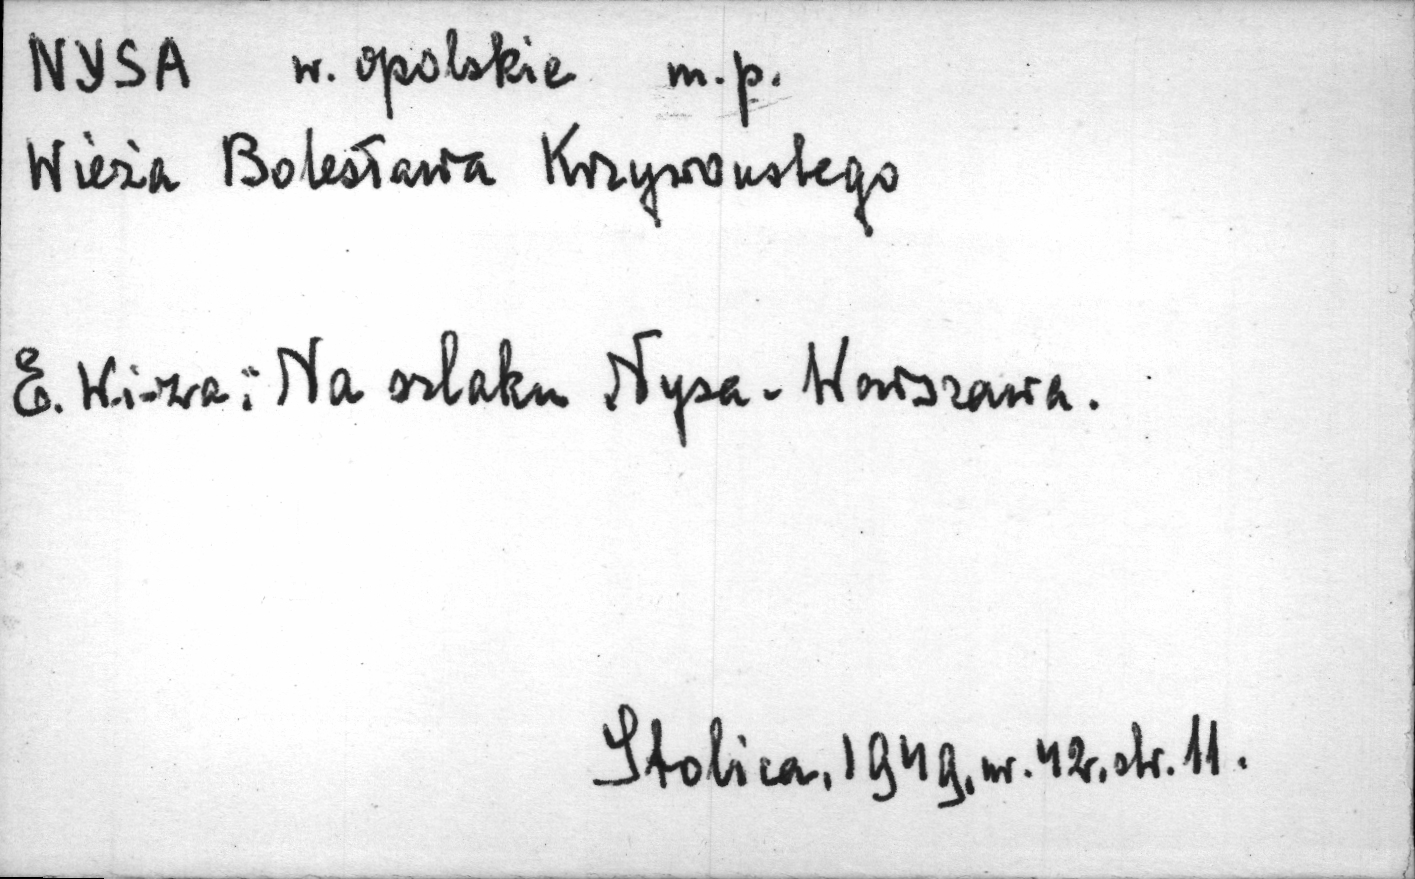 NYSA w. opolskie m.p.
Wieża Bolesława Krzywoustego
E. Wi-zva: Na szlaku Nysa - Warszawa.
Stolica, 1949, nr. 42, str. 11.